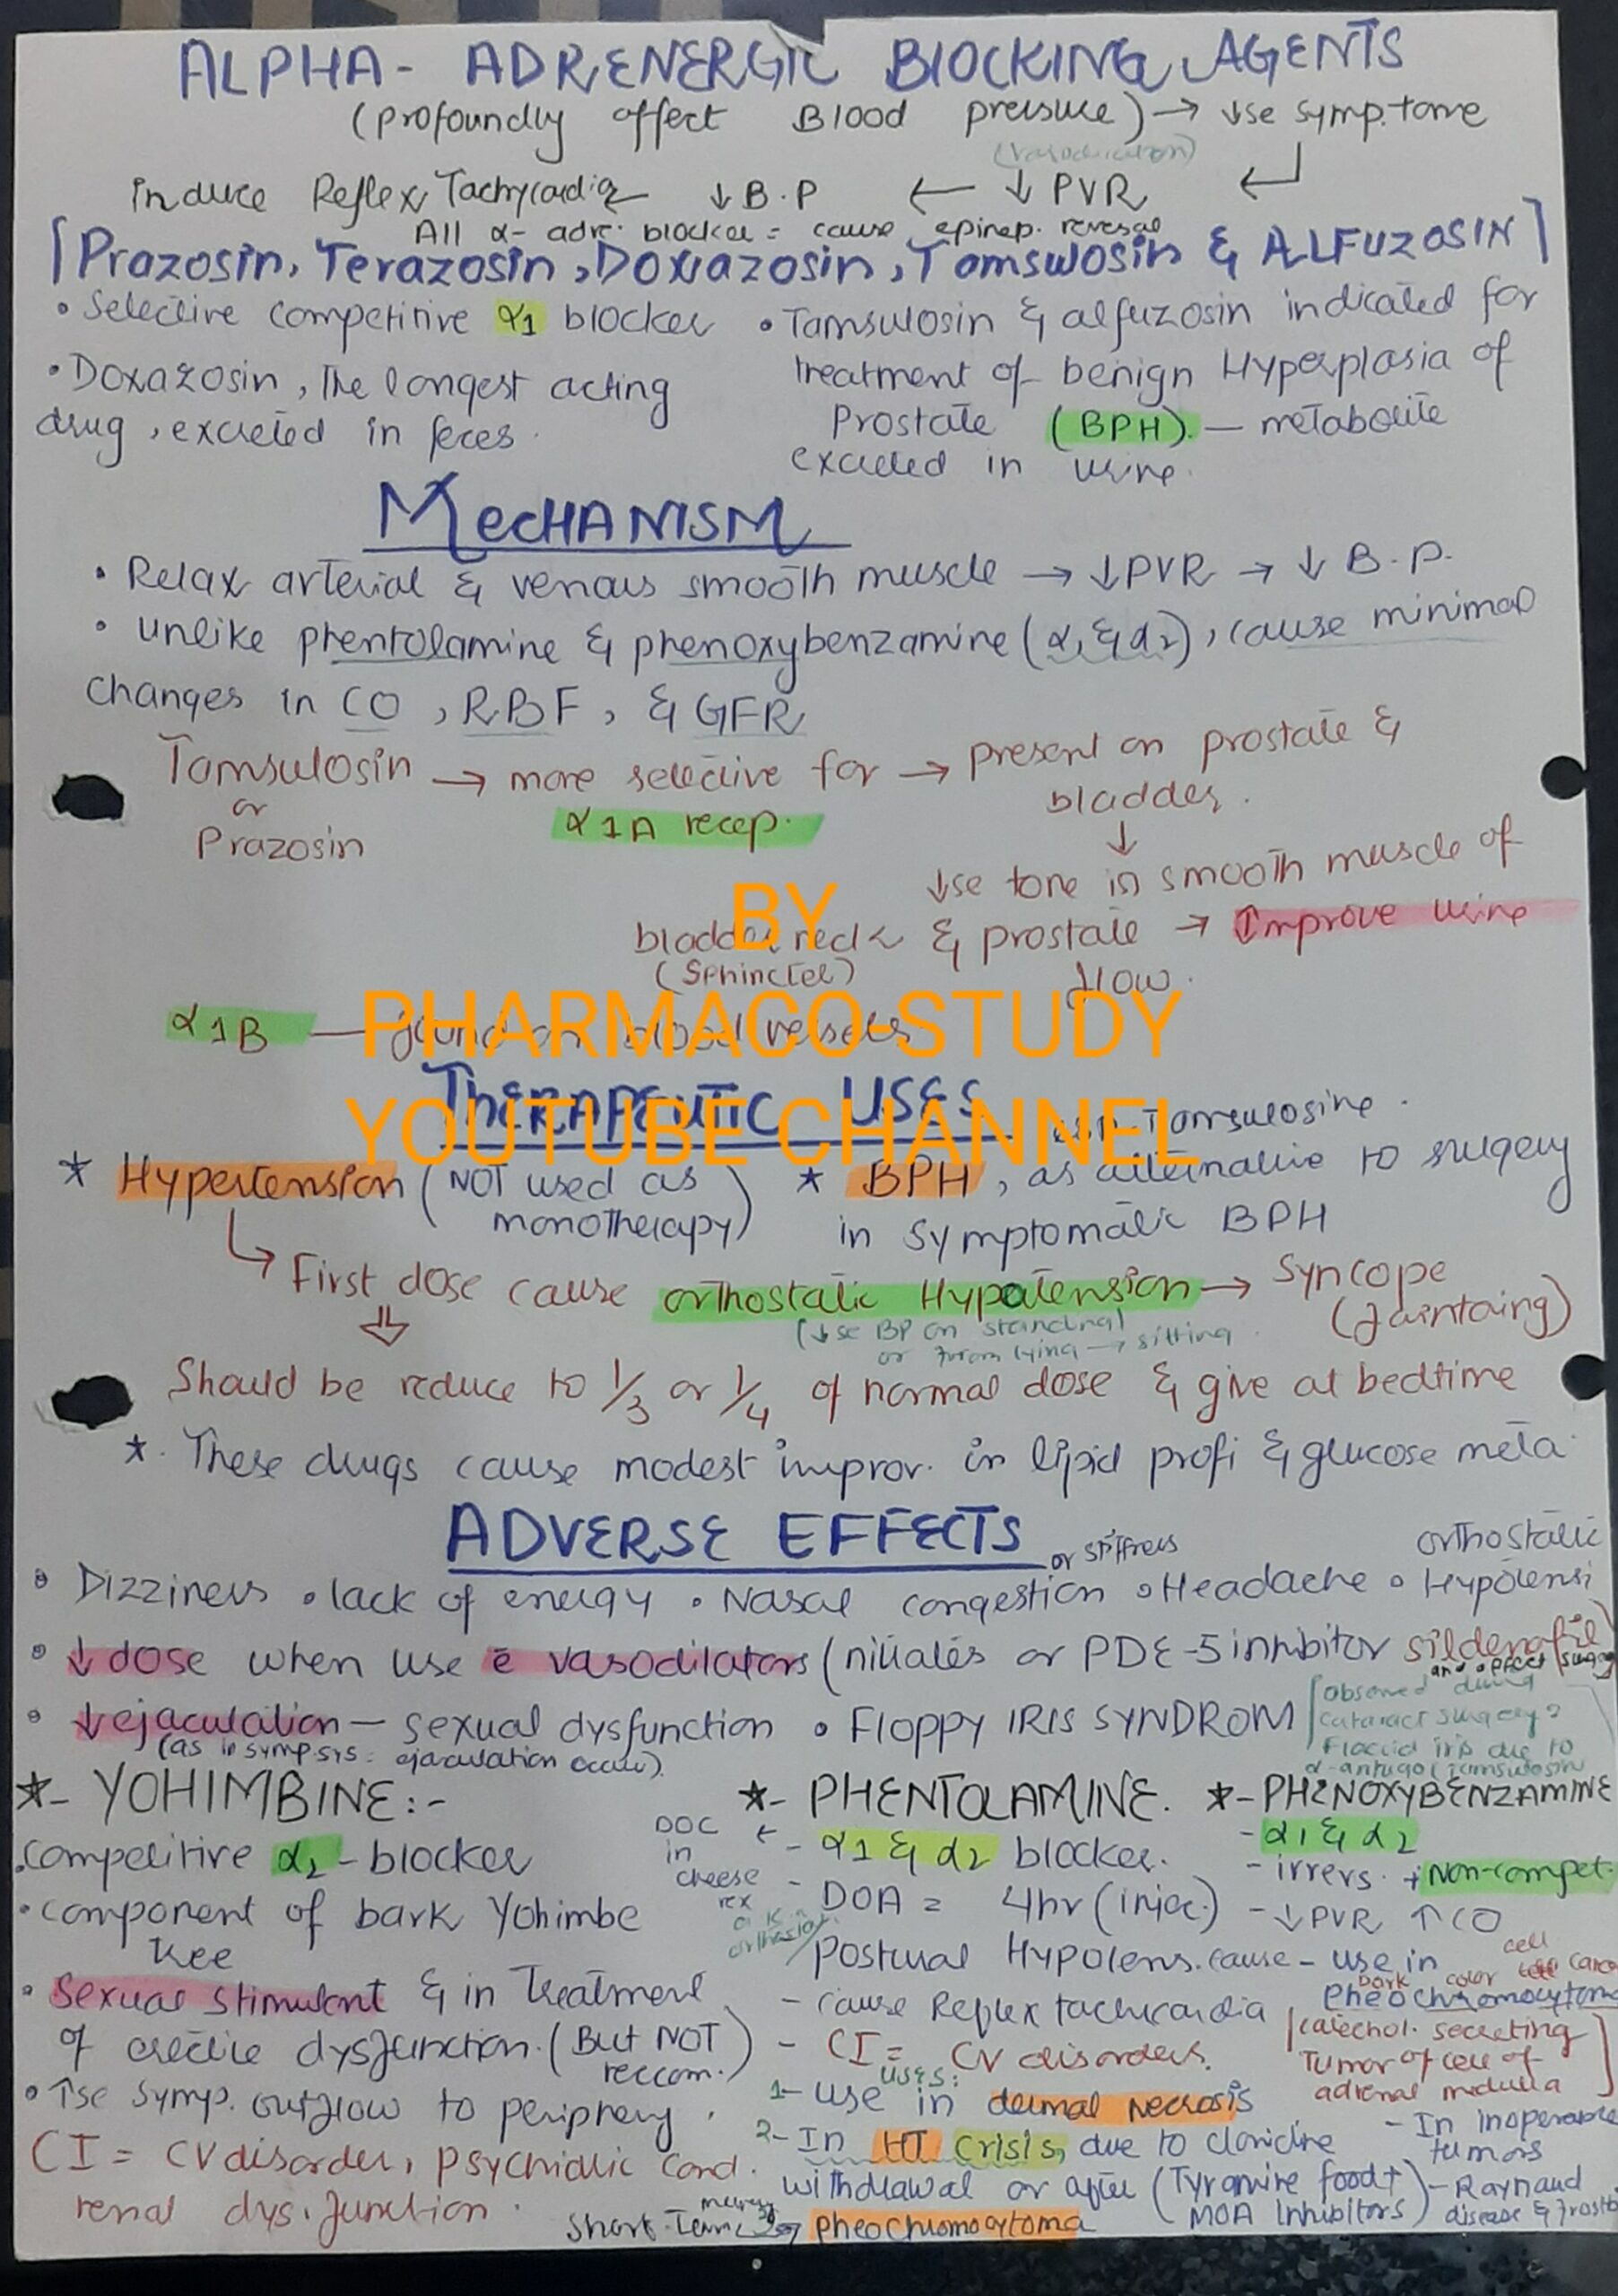 ALPHA- ADRENERGIC BLOCKING AGENTS
(profoundly affect Blood pressure) → ↓se symp. tone
(vasodilation)
induce Reflex Tachycardia ← ↓ B.P ← ↓ PVR ↵
All α- adre. blocker = cause epinep. reversal
[Prazosin, Terazosin, Doxazosin, Tamsulosin & ALFUZOSIN]
• Selective competitive α1 blocker
• Doxazosin, The longest acting
drug, excreted in feces.
• Tamsulosin & alfuzosin indicated for
treatment of benign Hyperplasia of
Prostate (BPH). — metabolite
excreted in urine.
MECHANISM
• Relax arterial & venous smooth muscle → ↓PVR → ↓ B.P.
• unlike phentolamine & phenoxybenzamine (α1 & α2), cause minimal
changes in CO, RBF, & GFR
Tamsulosin → more selective for → present on prostate &
or
Prazosin
α1A recep.
bladder.
↓
↓se tone in smooth muscle of
bladder neck & prostate → Improve urine
(Sphincter)
flow.
α1B — found on blood vessels
BY
PHARMACO-STUDY
YOUTUBE CHANNEL
THERAPEUTIC USES
esp. Tamsulosine.
* Hypertension (NOT used as
monotherapy)
* BPH, as alternative to surgery
in symptomatic BPH
↳ First dose cause orthostatic Hypotension → Syncope
(faintaing)
(↓se BP on standing)
or from lying → sitting
⇓
Should be reduce to 1/3 or 1/4 of normal dose & give at bedtime
*. These drugs cause modest improv. in lipid profi & glucose meta.
ADVERSE EFFECTS
• Dizziness • lack of energy • Nasal congestion or stiffness • Headache • orthostatic Hypotensi
• ↓ dose when use c̄ vasodilators (nitrates or PDE-5 inhibitor sildenafil)
• ↓ejaculation — sexual dysfunction • FLOPPY IRIS SYNDROM
(as in sympsys: ejaculation occur)
[Observed during
cataract surgery
Flaccid iris due to
α-antago (tamsulosin
*- YOHIMBINE:-
.competitive α2 - blocker
• component of bark Yohimbe
tree
• Sexual stimulant & in treatment
of erectile dysfunction. (But NOT
reccom.)
• ↑se symp. outflow to periphery.
CI = CV disorder, psychiatric cond.
renal dysfunction.
*- PHENTOLAMINE.
- α1 & α2 blocker.
DOC
in
cheese
- DOA = 4hr (injec.)
Postural Hypotens. cause
- cause Reflex tachycardia
- CI = CV disorders.
uses:
1- use in dermal necrosis
2- In HT Crisis, due to clonidine
withdrawal or after (Tyramine food +
MOA Inhibitors)
Short-Term
pheochromocytoma
*- PHENOXYBENZAMINE
- α1 & α2
- irrevs. + Non-compet.
- ↓PVR ↑CO
- use in
Pheochromocytoma
[catechol. secreting
Tumor of cell of
adrenal medulla]
- In inoperable
tumors
- Raynaud
disease & frostb